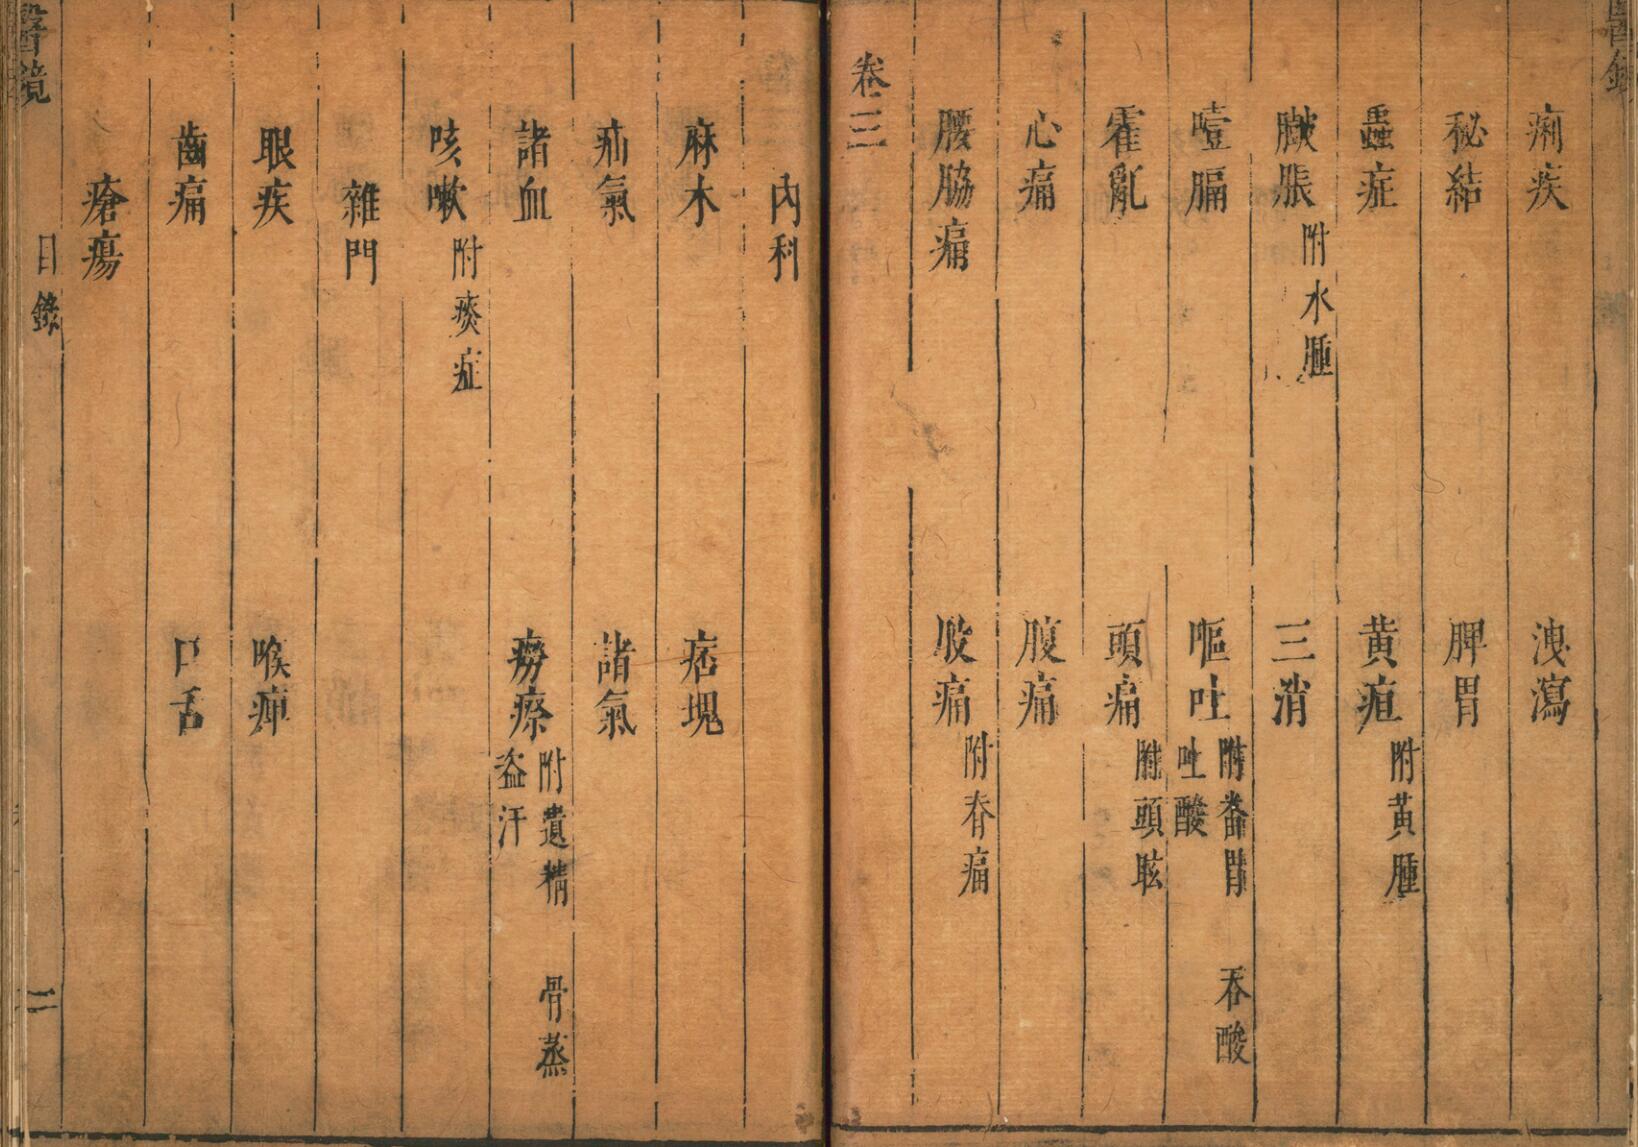 痢疾 洩瀉
秘結 脾胃
蟲症 黄疸附黄腫
臌脹附水腫 三消
噎膈 嘔吐附畨胃 吞酸 吐酸
霍亂 頭痛附頭眩
心痛 腹痛
腰脇痛 股痛附脊痛
卷三
內科
麻木 痞塊
疝氣 諸氣
諸血 癆瘵附遺精 骨蒸 盗汗
咳嗽附痰症
雜門
眼疾 喉痺
齒痛 口舌
瘡瘍
醫鏡 目錄 二